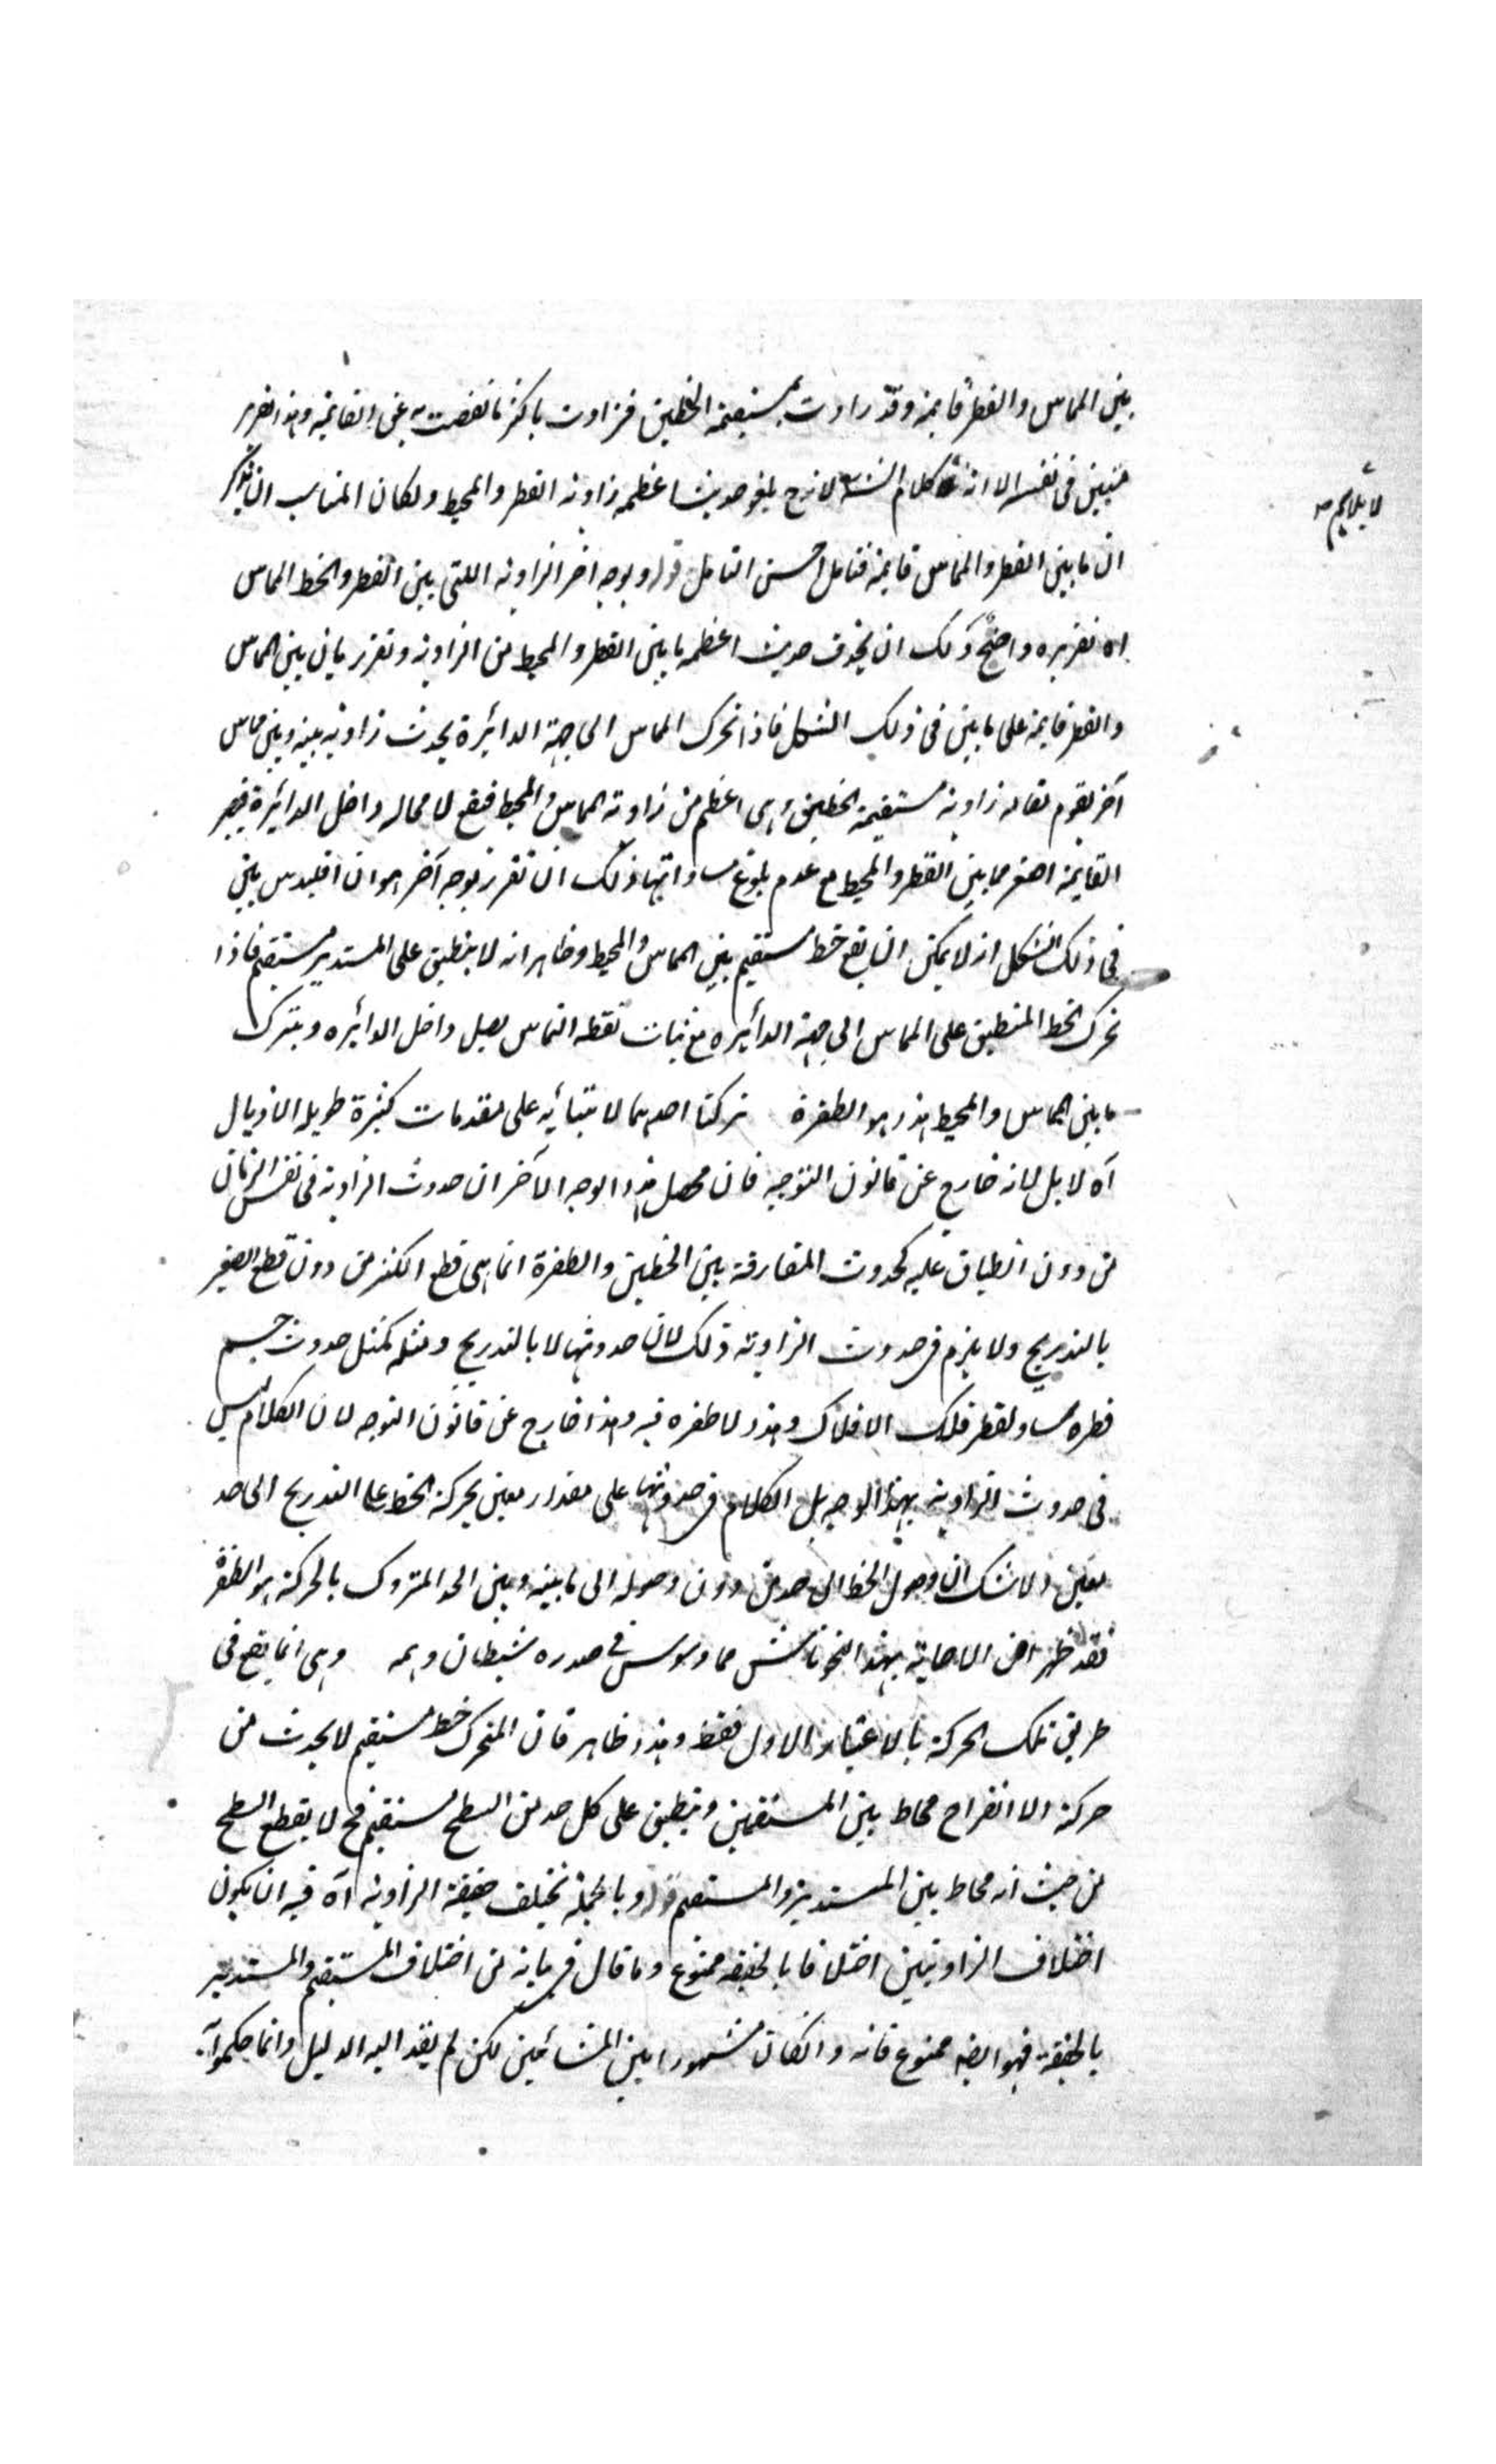 بين المماس والقطر قايمة وقد زادت بمستقيمة الخطين فزادت باكثر ما نقصت به عن القايمة وهذا تقرير
متين في نفسه الا انه كلام الشارح لانه ح يلغو حديث اعظمية زاوية القطر والمحيط ولكان المناسب ان يذكر
لا يلايم
ان ما بين القطر والمماس قايمة فتامل احسن التامل قوله وبوجه اخر الزاوية اللتى بين القطر والخط المماس
اه تقريره واضح ولك ان تحذف حديث اعظمية ما بين القطر والمحيط من الزاوية وتقرر بان بين المماس
والقطر قايمة على ما بين في ذلك الشكل فاذا تحرك المماس الى جهة الدائرة يحدث زاوية بينه وبين مماس
آخر يقوم مقامه زاوية مستقيمة الخطين وهى اعظم من زاوية المماس والمحيط فيقع لا محاله داخل الدائرة فيصير
القايمة اصغر مما بين القطر والمحيط مع عدم بلوغ مساواتها ولك ان تقرر بوجه آخر هو ان اقليدس بين
في ذلك الشكل انه لا يمكن ان يقع خط مستقيم بين المماس والمحيط وظاهر انه لا ينطبق على المستدير مستقيم فاذا
تحرك الخط المنطبق على المماس الى جهة الدائيره مع ثبات نقطه التماس يصل داخل الدائيره ويترك
ما بين المماس والمحيط هذا هو الطفرة تركنا احديهما لابتنائيه على مقدمات كثيرة طويلة الاذيال
آه لا بل لانه خارج عن قانون التوجيه فان محصل هذا الوجه الآخر ان حدوث الزاوية في نفس الزمان
من دون انطباق عليه كحدوث المفارقة بين الخطين والطفرة انما هى قطع الكثير من دون قطع الصغير
بالتدريج ولا يلزم في حدوث الزاوية ذلك لان حدوثها لا بالتدريج ومثله كمثل حدوث جسم
قطره مساو لقطر فلك الافلاك وهذا لا طفره فيه وهذا خارج عن قانون التوجيه لان الكلام ليس
في حدوث الزاوية بهذا الوجه بل الكلام في حدوثها على مقدار معين بحركة الخط على التدريج الى حد
معين ولا شك ان وصول الخط الى حد من دون وصوله الى ما بينه وبين الحد المتروك بالحركة هو الطفرة
فقد ظهر ان الاجابة بهذا النحو ناش مما وسوس في صدره شيطان وهمه وهى انما يقع في
طريق تلك الحركة بالاعتبار الاول فقط وهذا ظاهر فان المتحرك خط مستقيم لا يحدث من
حركته الا انفراج محاط بين المستقيمين وينطبق على كل حد من السطح مستقيم فح لا يقطع السطح
من حيث انه محاط بين المستدير والمستقيم قوله وبالجملة تختلف حقيقة الزاوية آه فيه ان يكون
اختلاف الزاويتين اختلافا بالحقيقه ممنوع وما قال في بيانه من اختلاف المستقيم والمستدير
بالحقيقة فهو ايضا ممنوع فانه وان كان مشهورا بين المشائين لكن لم يقد اليه الدليل وانما حكموا